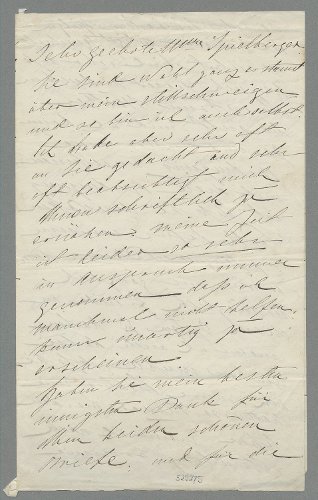 Sehr geehrte Frau Spielberger
Sie sind Wohl ganz erstaunt
über mein stillschweigen
und so bin ich auch selbst.
Ich habe aber sehr oft
an Sie gedacht und sehr
oft beabsichtigt mich
Ihnen schriftlich zu
meine Zeit
ist leider so sehr
in anspruch immer
genommen daß ich
manchmal nicht helfen
kann unartig zu
erscheinen.
Haben Sie mein besten
innigsten Dank für
Ihre beiden schönen
Briefe. und für die